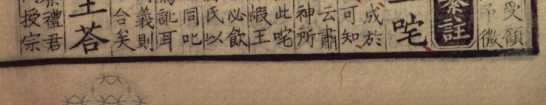 受顧
微
註
咤
成於
可知
云肅
神所
此咤
嘏王
必飲
氏以
同叱
耳
義則
合矣
王荅
禮君
授宗